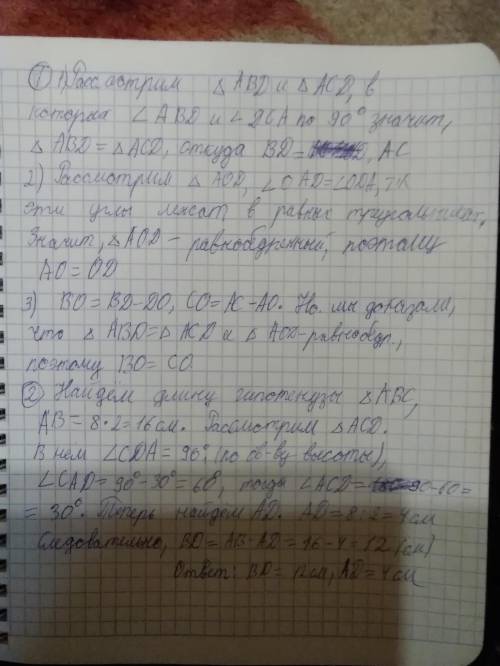 ① 1) Рассмотрим △ ABD и △ ACD, в
которых ∠ ABD и ∠ DCA по 90° значит,
△ ABD = △ ACD, откуда BD = AC
2) Рассмотрим △ AOD, ∠OAD=∠ODA, т.к
эти углы лежат в равных треугольниках.
Значит, △AOD - равнобедренный, поэтому
AO = OD
3) BO = BD-DO, CO = AC-AO. Но мы доказали,
что △ ABD = △ ACD и △ AOD-равнобедр.,
поэтому BO = CO
② Найдём длину гипотенузы △ ABC,
AB = 8·2 = 16 см. Рассмотрим △ ACD.
В нём ∠CDA = 90° (по св-ву высоты),
∠CAD = 90°-30° = 60°, тогда ∠ACD = 90-60=
= 30°. Теперь найдём AD. AD = 8:2 = 4 см
Следовательно, BD = AB-AD = 16-4 = 12 (см)
Ответ: BD = 12 см, AD = 4 см